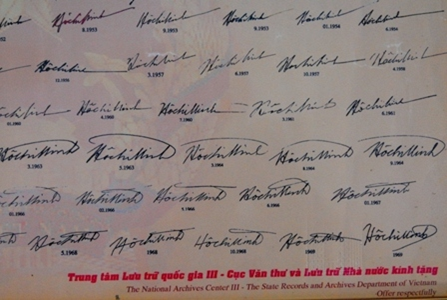 HồChíMinh HồChíMinh HồChíMinh HồChíMinh HồChíMinh
8.1953 9.1953 9.1953 01.1954
HồChíMinh HồChíMinh HồChíMinh HồChíMinh HồChíMinh
3.1957 4.1957 10.1957 4.1958
HồChíMinh HồChíMinh HồChíMinh HồChíMinh HồChíMinh
01.1960 4.1960 7.1960 3.1961 6.1961
HồChíMinh HồChíMinh HồChíMinh HồChíMinh HồChíMinh
3.1963 5.1963 4.1964
HồChíMinh HồChíMinh HồChíMinh HồChíMinh HồChíMinh
01.1966 9.1966 4.1966 01.1967
HồChíMinh HồChíMinh HồChíMinh HồChíMinh HồChíMinh
5.1968 1968 10.1968 1969 1969
Trung tâm Lưu trữ quốc gia III - Cục Văn thư và Lưu trữ Nhà nước kính tặng
The National Archives Center III - The State Records and Archives Department of Vietnam
Offer respectfully